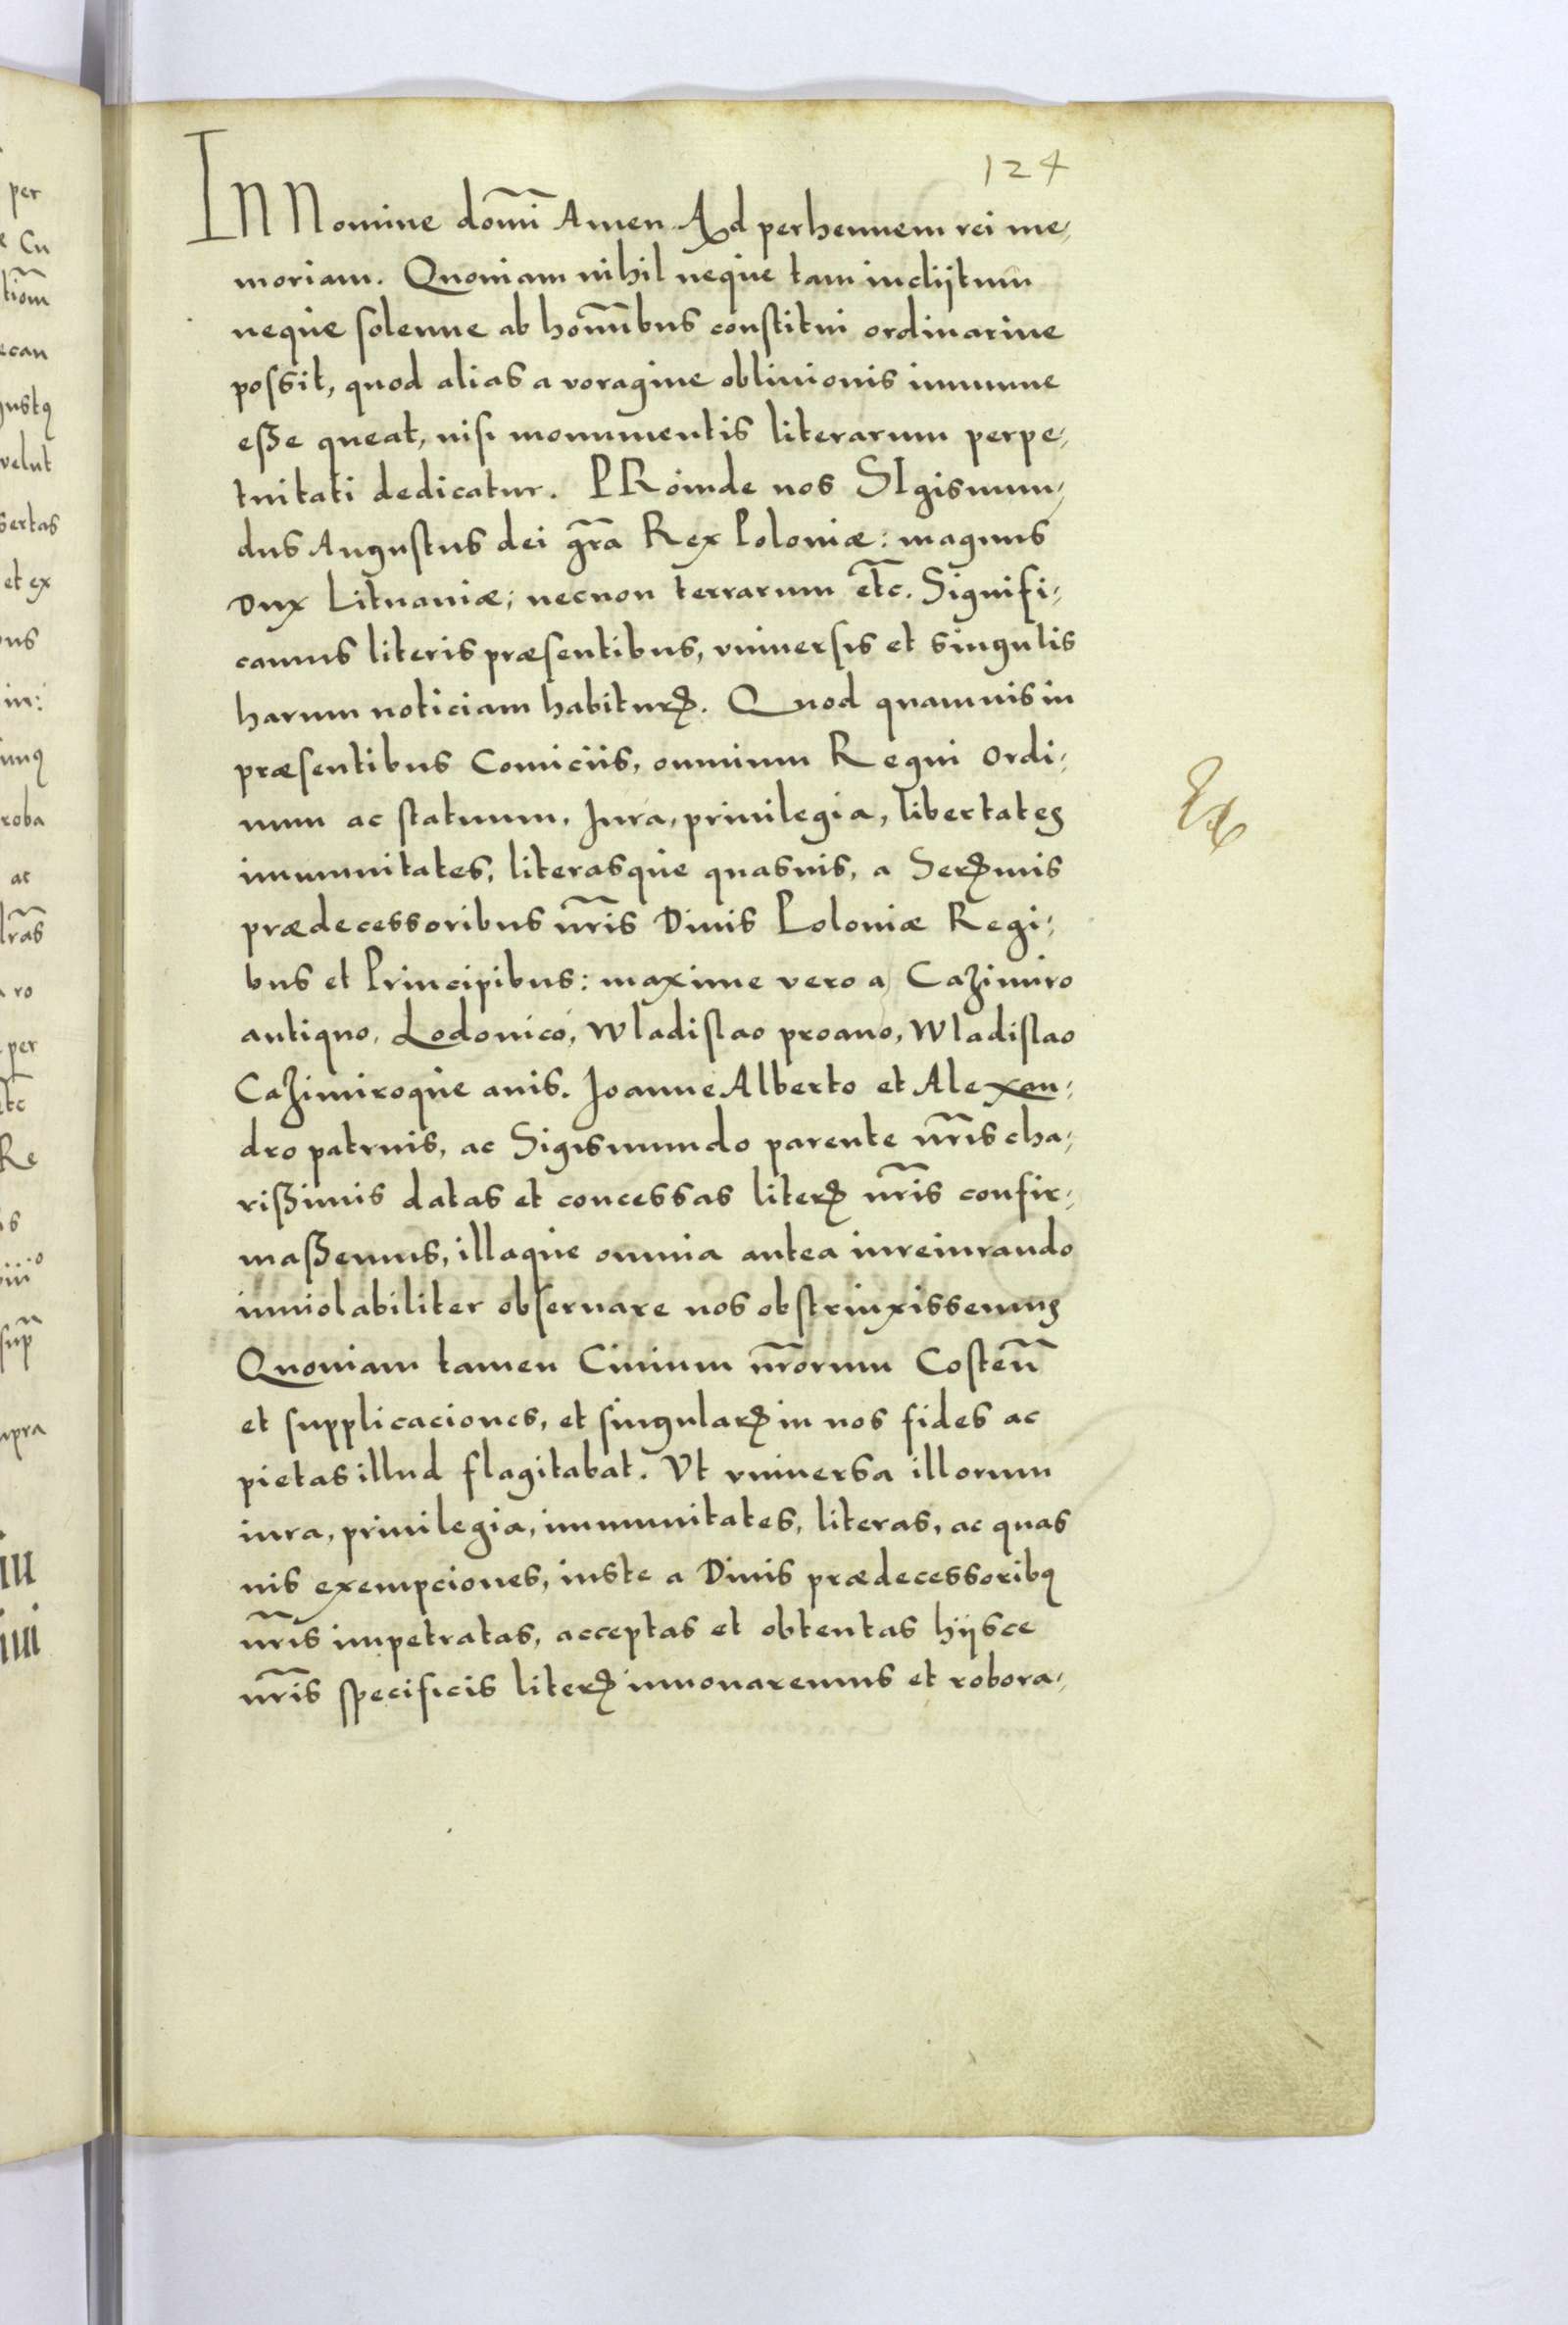 124
IN Nomine domĩ Amen Ad perhennem rei me,
moriam. Quoniam nihil neque tam inclijtum
neque solenne ab homĩbus constitui ordinariue
possit, quod alias a voragine obliuionis immune
eße queat, nisi monumentis literarum perpe,
tuitati dedicatur. PRoinde nos SIgismun,
dus Augustus dei gr̃a Rex Poloniæ: magnus
Dux Lituaniæ; necnon terrarum et̃c. Signifi,
camus literis præsentibus, vniuersis et singulis
harum noticiam habiturꝭ. Quod quamuis in
præsentibus Comiciis, omnium Regni Ordi,
num ac statuum, Jura, priuilegia, libertates
immunitates, literasque quasuis, a Serꝭmis
prædecessoribus nr̃is Diuis Poloniæ Regi,
bus et Principibus: maxime vero a Cazimiro
antiquo, Lodouico, Wladislao proauo, Wladislao
Cazimiroque auis. Joanne Alberto et Alexan,
dro patruis, ac Sigismundo parente nr̃is cha,
rißimis datas et concessas literꝭ nr̃is confir,
maßemus, illaque omnia antea iureiurando
inuiolabiliter obseruare nos obstrinxissemus
Quoniam tamen Ciuium nr̃orum Costeñ
et supplicaciones, et singularꝭ in nos fides ac
pietas illud flagitabat. Vt vniuersa illorum
iura, priuilegia, immunitates, literas, ac quas
uis exempciones, iuste a Diuis prædecessoribꝯ
nr̃is impetratas, acceptas et obtentas hijsce
nr̃is specificis literꝭ innouaremus et robora,